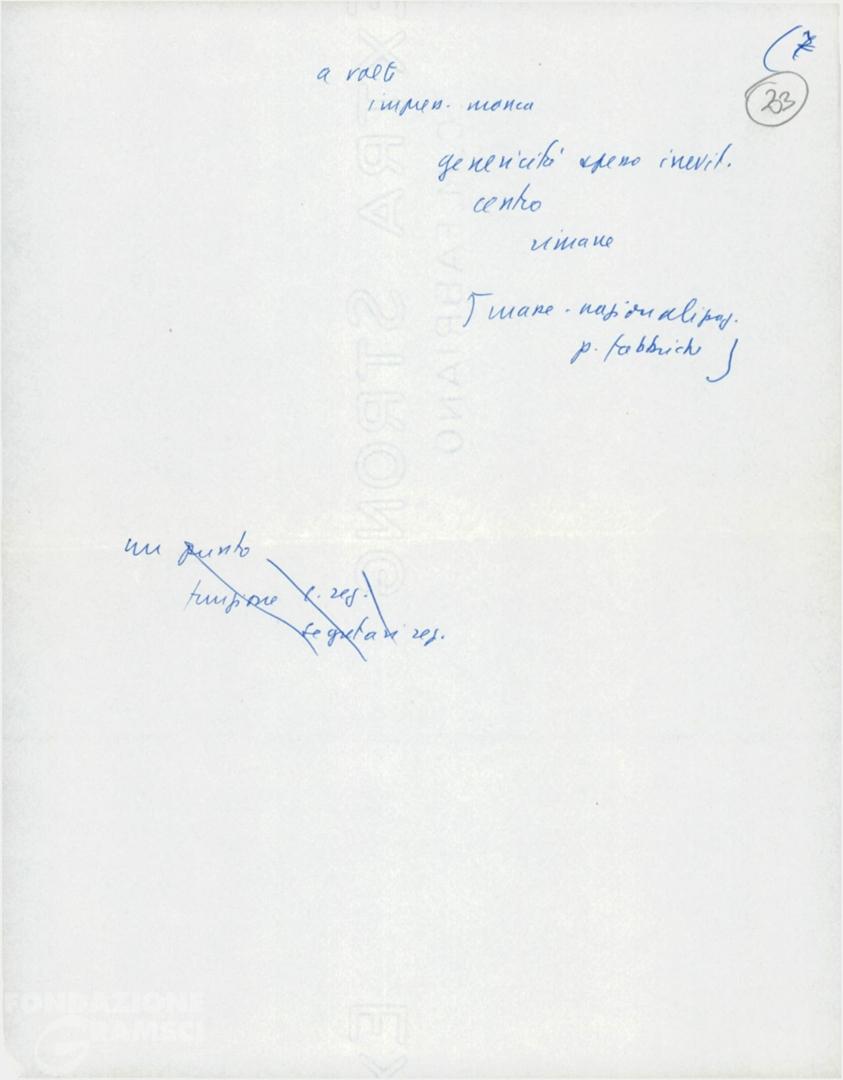 (7
23
a volt
impres. manca
genericità spesso inevit.
centro
rimane
[ mare - nazionalizzaz.
p. fabbriche ]
un punto
funzione c. reg.
segretari reg.
EXTRA STRONG
FABRIANO
FONDAZIONE
GRAMSCI